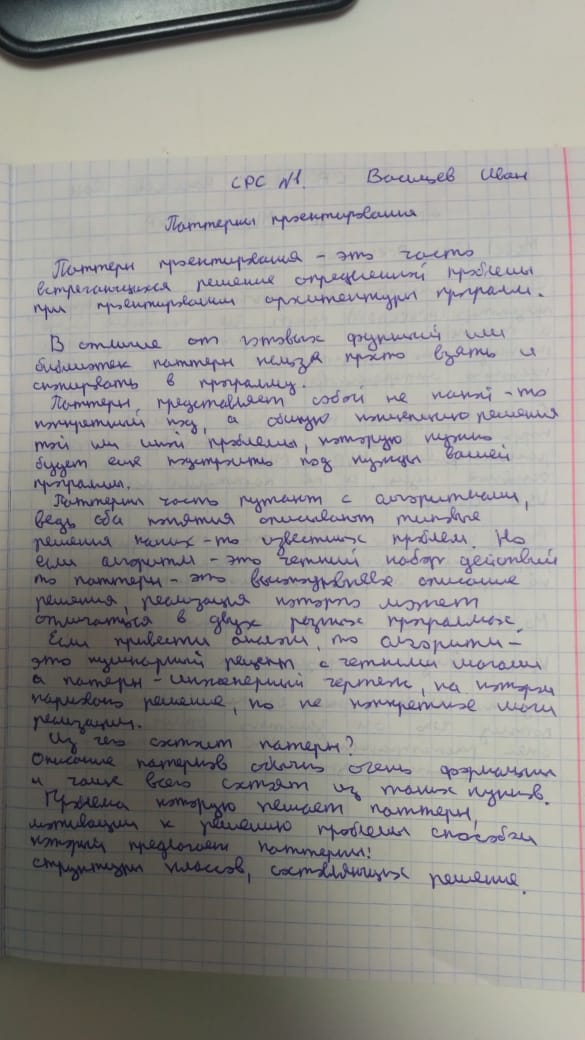 СРС №1. Иван
Паттерны проектирования
Паттерн проектирования - это часто
встречающихся решение определенной проблемы
при проектировании архитектуры программ.
В отличие от готовых функций или
библиотек паттерн нельзя просто взять и
скопировать в программу.
Паттерн представляет собой не какой-то
конкретный код, а общую концепцию решения
той или иной проблемы, которую нужно
будет еще подстроить под нужды вашей
программы.
Паттерны часто путают с алгоритмами,
ведь оба понятия описывают типовые
решения каких-то известных проблем. Но
если алгоритм - это четкий набор действий
то паттерн - это высокоуровневое описание
решения, реализация которого может
отличаться в двух разных программах.
Если привести аналоги, то алгоритм -
это кулинарный рецепт с четкими шагами
а патерн - инженерный чертеж, на котором
решение, но не конкретное шаги
реализации.
Из чего состоит патерн?
Описание патернов обычно очень формальны
и чаще всего состоят из таких пунктов.
Проблема которую решает паттерн,
мотивации к решению проблемы способом
который предлагает паттерны!
структуры классов, составляющих решение.